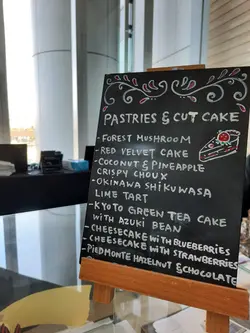 PASTRIES & CUT CAKE
- FOREST MUSHROOM
- RED VELVET CAKE
- COCONUT & PINEAPPLE
CRISPY CHOUX
- OKINAWA SHIKUWASA
LIME TART
- KYOTO GREEN TEA CAKE
WITH AZUKI BEAN
- CHEESECAKE WITH BLUEBERRIES
- CHEESECAKE WITH STRAWBERRIES
- PIEDMONTE HAZELNUT & CHOCOLATE